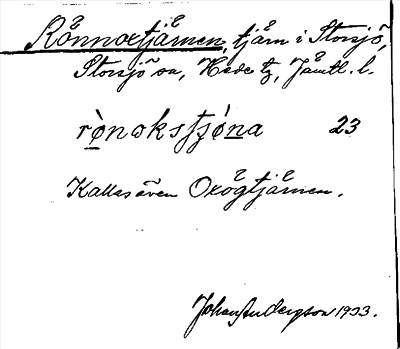 Rånnoxtjärnen, tjärn i Storsjö,
Storsjö sn, Hede tg, Jämtl. l.
23
Kallas även Oxögtjärnen.
Johan Andersson 1933.